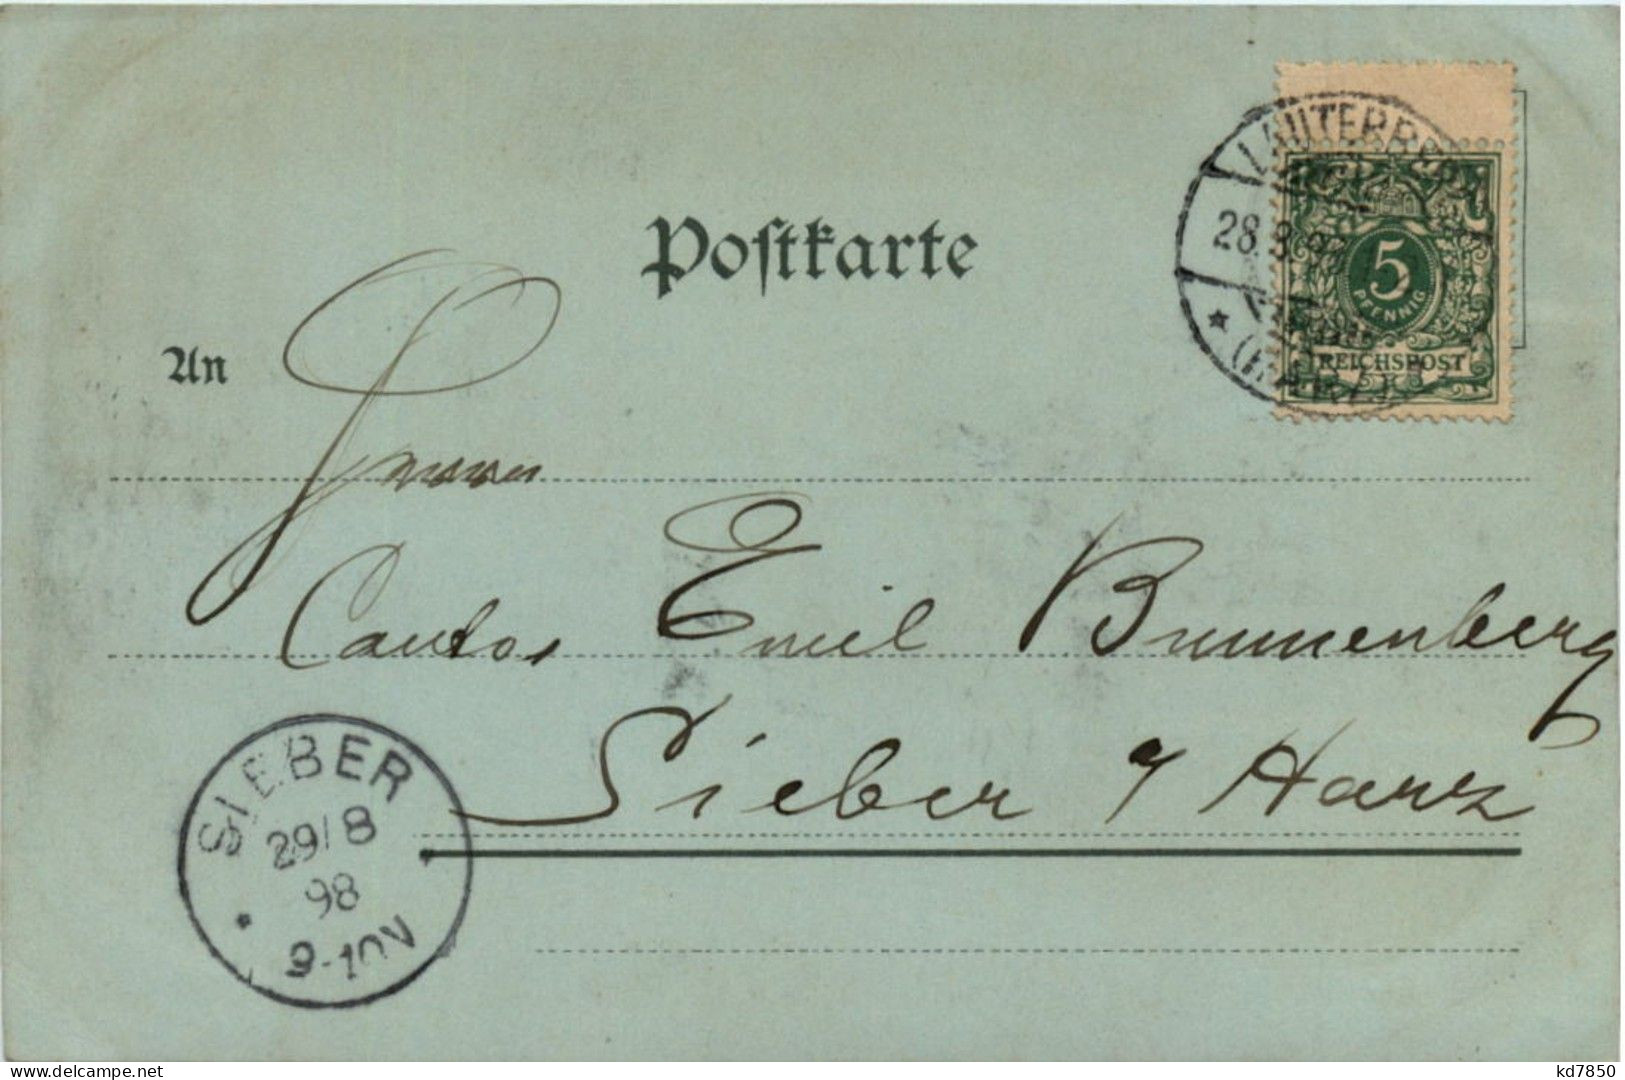 LAUTERBERG
28.8.98
(HARZ)
5
PFENNIG
REICHSPOST
Postkarte
An
Herrn
Cantor Emil Brunnenberg
Sieber / Harz
SIEBER
29/8
98
9-10V
delcampe.net
kd7850